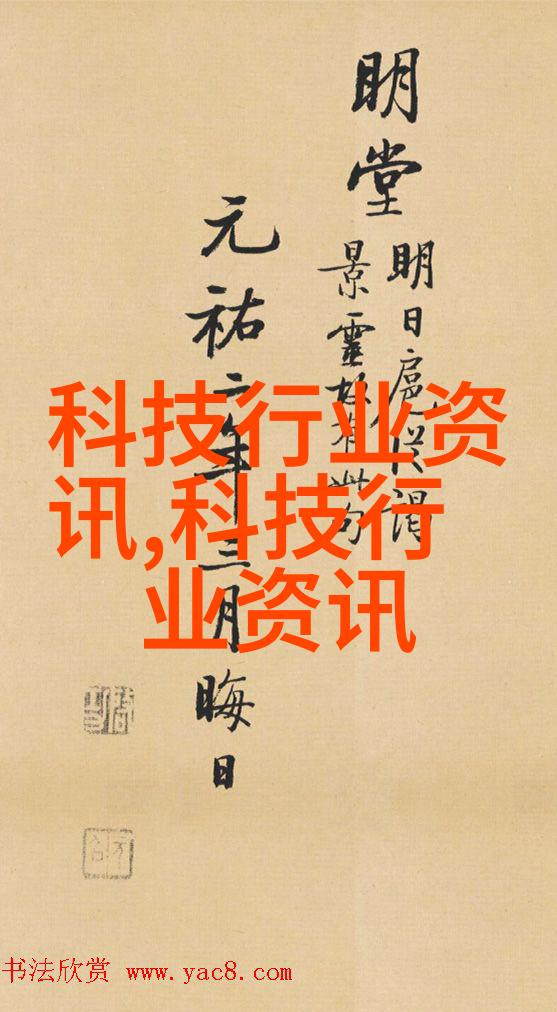 明堂
明日扈從謁
景靈故有此句
元祐二年三月晦日
科技行业资
讯,科技行
业资讯
书法欣赏 www.yac8.com